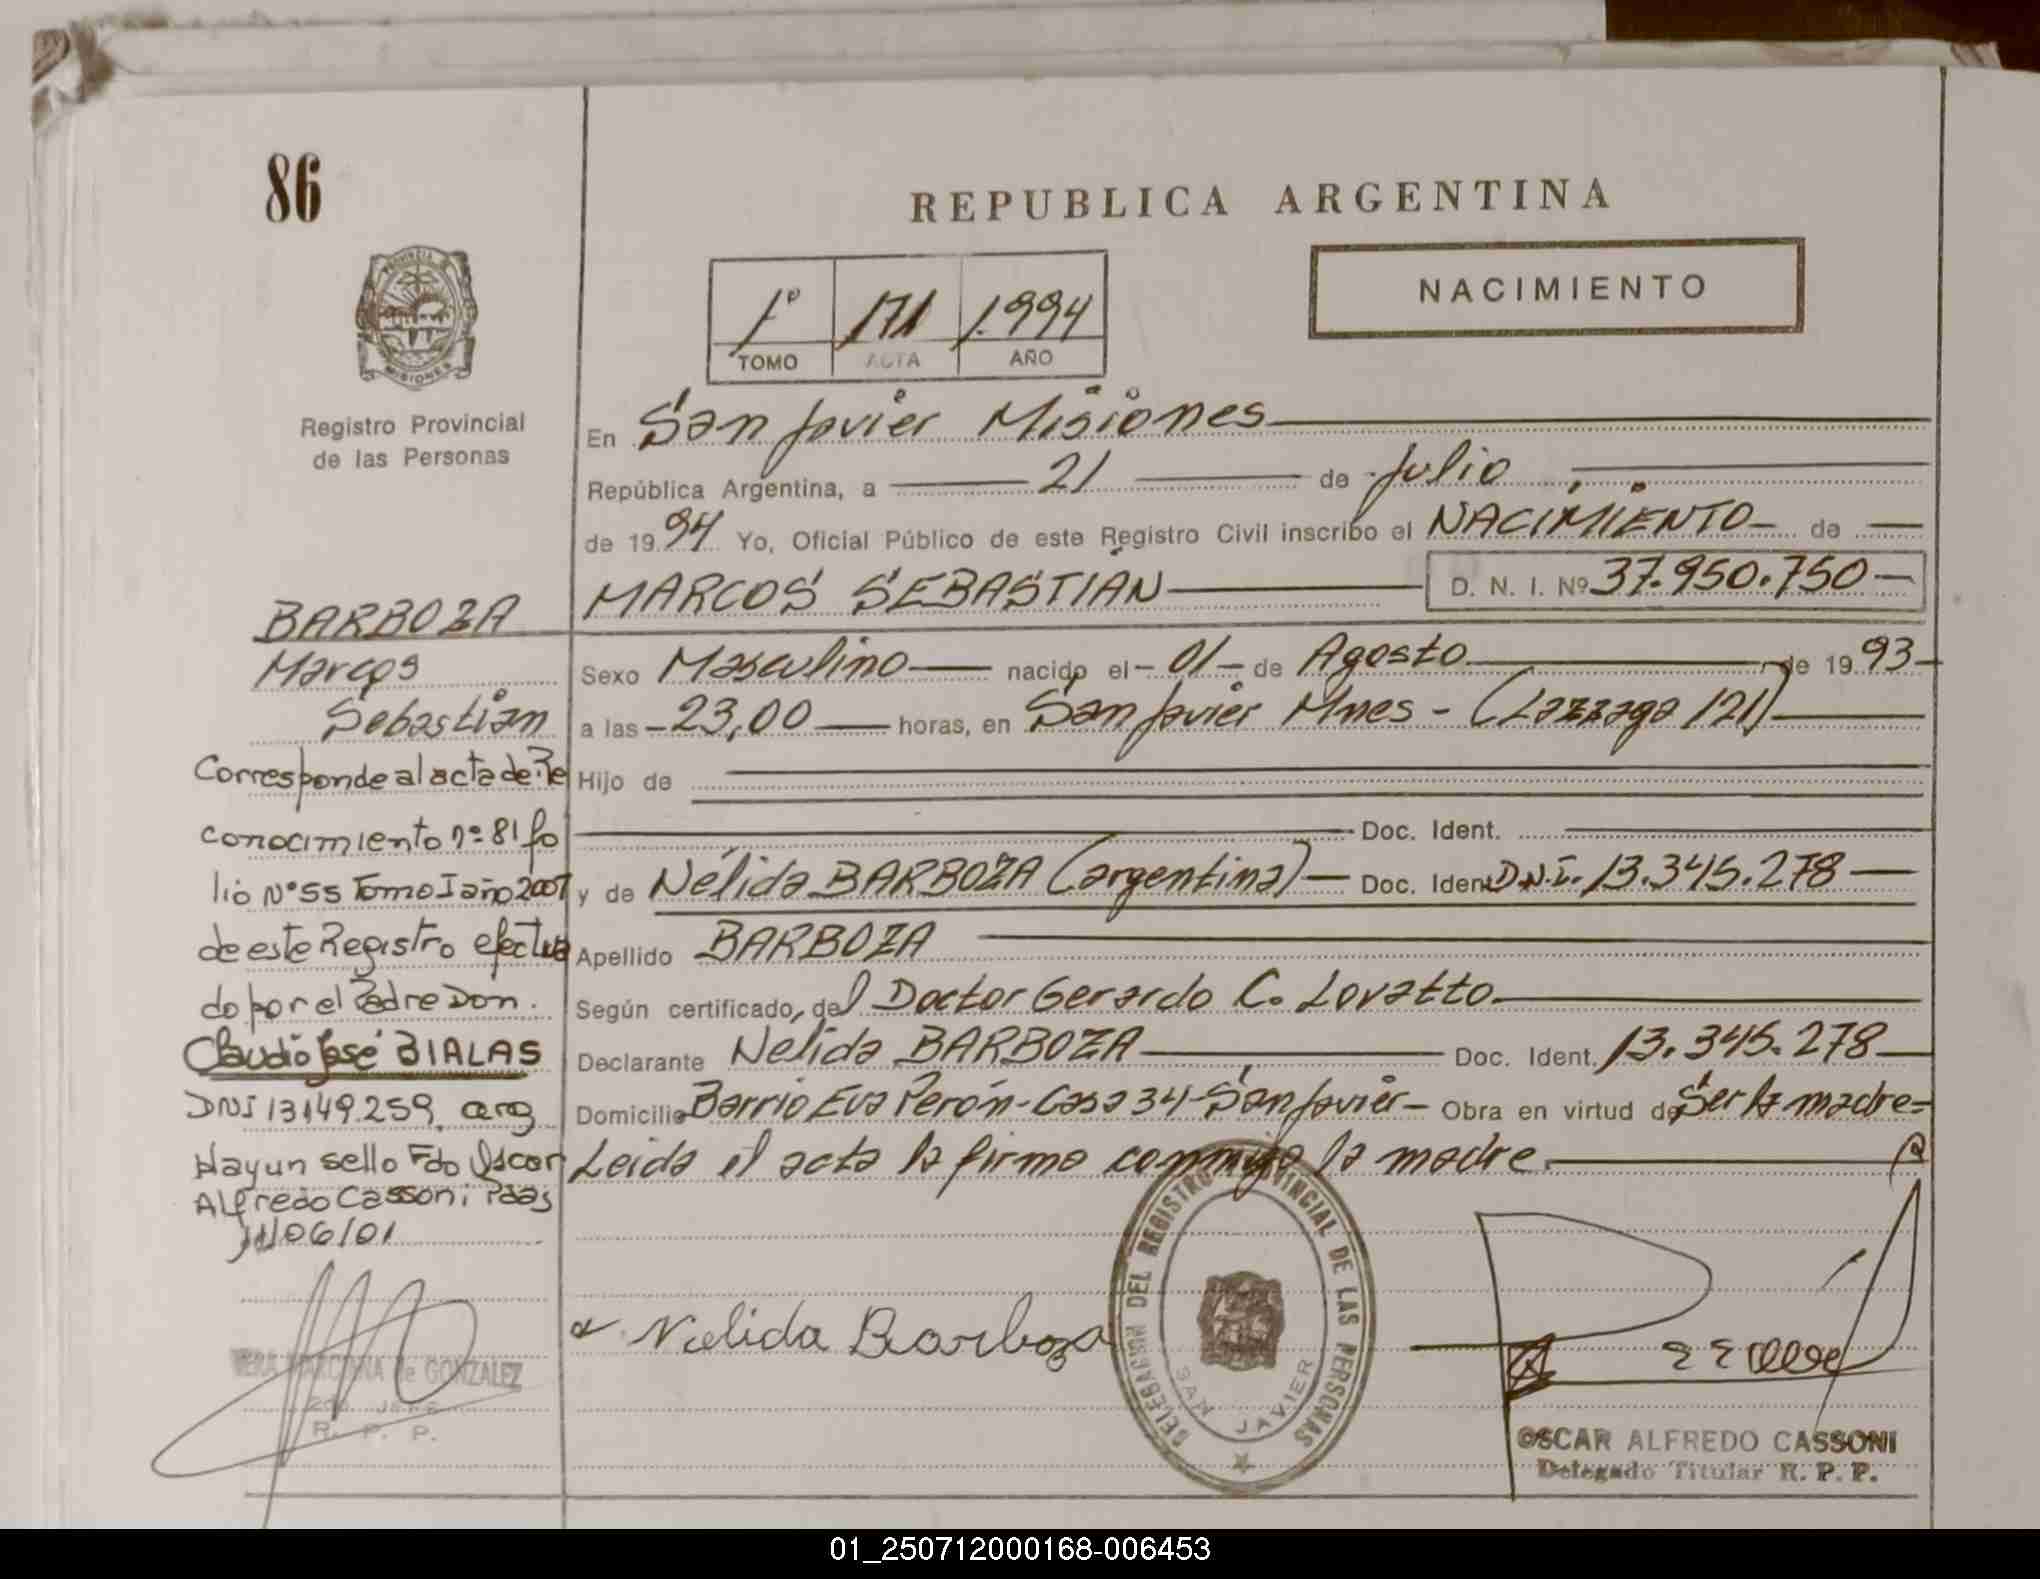 86
REPUBLICA ARGENTINA
NACIMIENTO
1º 171 1.994
TOMO ACTA AÑO
PROVINCIA DE
MISIONES
Registro Provincial
de las Personas
En San Javier Misiones
República Argentina, a 21 de Julio
de 1994 Yo, Oficial Público de este Registro Civil inscribo el NACIMIENTO de
MARCOS SEBASTIAN D. N. I. Nº 37.950.750
Sexo Masculino nacido el 01 de Agosto de 1993
a las 23,00 horas, en San Javier Mnes - (Lazzaga 121)
Hijo de
Doc. Ident.
y de Nélida BARBOZA (argentina) Doc. Ident D.N.I. 13.345.278
Apellido BARBOZA
Según certificado, del Doctor Gerardo C. Lovatto
Declarante Nelida BARBOZA Doc. Ident. 13.345.278
Domicilio Barrio Eva Perón - Casa 34 - San Javier - Obra en virtud de Ser la madre
Leida el acta la firma conmigo la madre
BARBOZA
Marcos
Sebastian
Corresponde al acta de Re
conocimiento nº 81 fo
lio Nº 55 Tomo I año 2001
de este Registro efectua
do por el Padre Don.
Claudio José BIALAS
DNI 13149.259 arg
Hay un sello Fdo Oscar
Alfredo Cassoni Pdas
11/06/01
de GONZALEZ
2do JEFE
R. P. P.
Nelida Barboza
DELEGACION DEL REGISTRO PROVINCIAL DE LAS PERSONAS
SAN JAVIER
OSCAR ALFREDO CASSONI
Delegado Titular R. P. P.
01_250712000168-006453